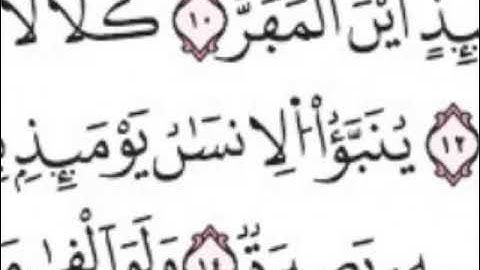 أَيْنَ الْمَفَرُّ ١٠ كَلَّا لَا
١٢ يُنَبَّؤُا الْإِنسَانُ يَوْمَئِذٍ
بَصِيرَةٌ ١٤ وَلَوْ أَلْقَىٰ